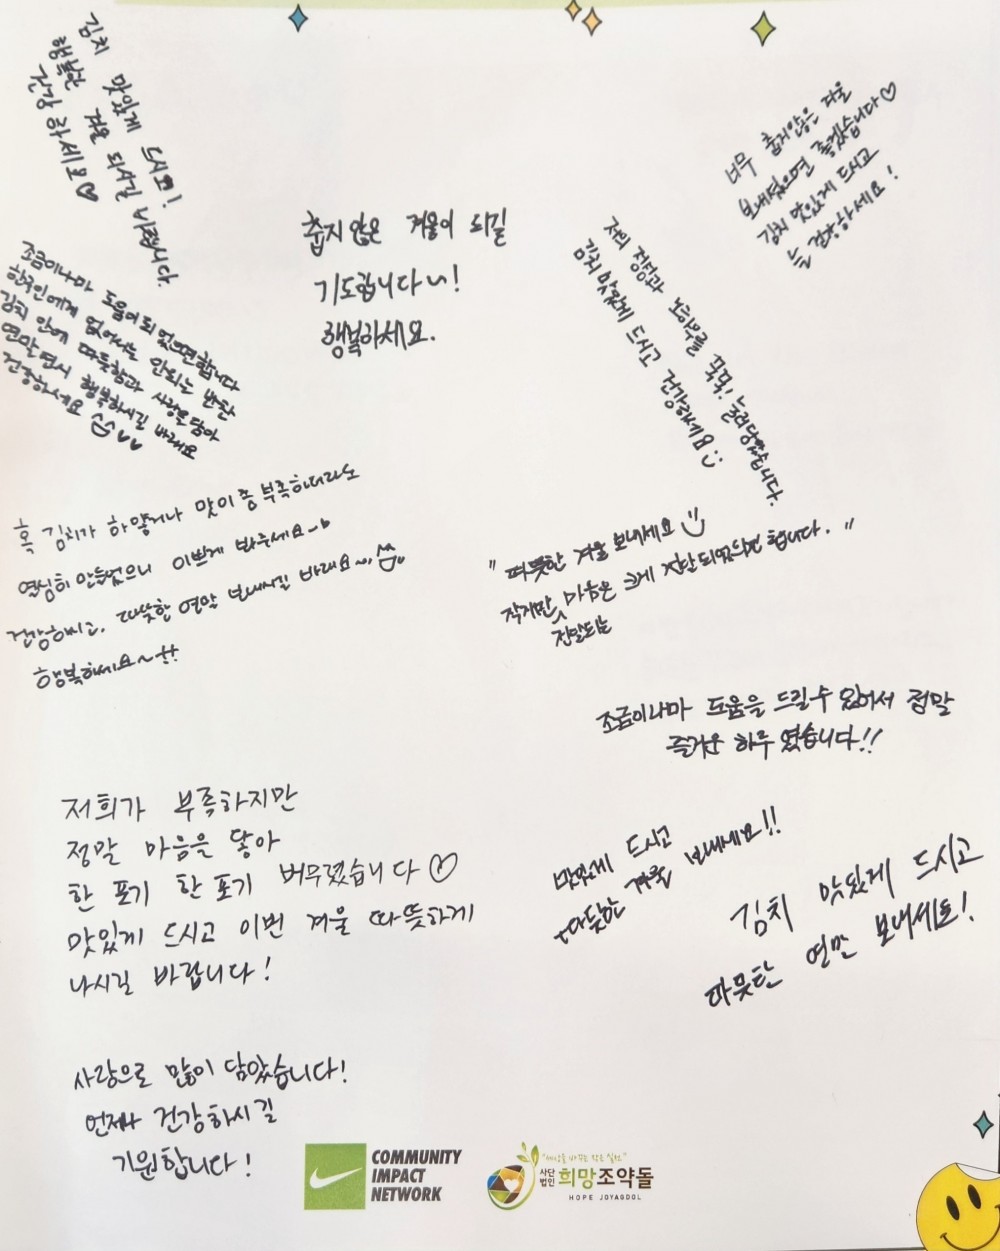 김치 맛있게 드시고!
행복한 겨울 되시길 바랍니다.
건강하세요♡
너무 춥지않은 겨울
보내셨으면 좋겠습니다♡
김치 맛있게 드시고
건강하세요!
춥지 않은 겨울이 되길
기도합니다~!
행복하세요.
저의 정성과 노하우를 꾹꾹! 눌러담았습니다.
김치 맛있게 드시고 건강하세요
조금이나마 도움이 되었으면합니다
한국인에게 없어서는 안되는 반찬
김치 안에 따듯함과 사랑을 담아
연말 연시 행복하시길 바래요
건강하세요
혹 김치가 하얗거나 맛이 좀 부족하더라도
열심히 만들었으니 이쁘게 봐주세요
건강하시고, 따뜻한 연말 보내시길 바래요~
행복하세요~!!
"따뜻한 겨울 보내세요
작지만, 마음은 크게 전달되었으면 합니다."
전달되는
조금이나마 도움을 드릴수 있어서 정말
즐거운 하루 였습니다!!
저희가 부족하지만
정말 마음을 닿아
한 포기 한 포기 버무렸습니다♡
맛있게 드시고 이번 겨울 따뜻하게
나시길 바랍니다!
맛있게 드시고
따듯한 겨울 보내세요!!
김치 맛있게 드시고
따뜻한 연말 보내세요!
사랑으로 많이 담았습니다!
언제나 건강하시길
기원합니다!
COMMUNITY
IMPACT
NETWORK
"세상을 바꾸는 작은 실천"
사단
법인 희망조약돌
HOPE JOYAGDOL